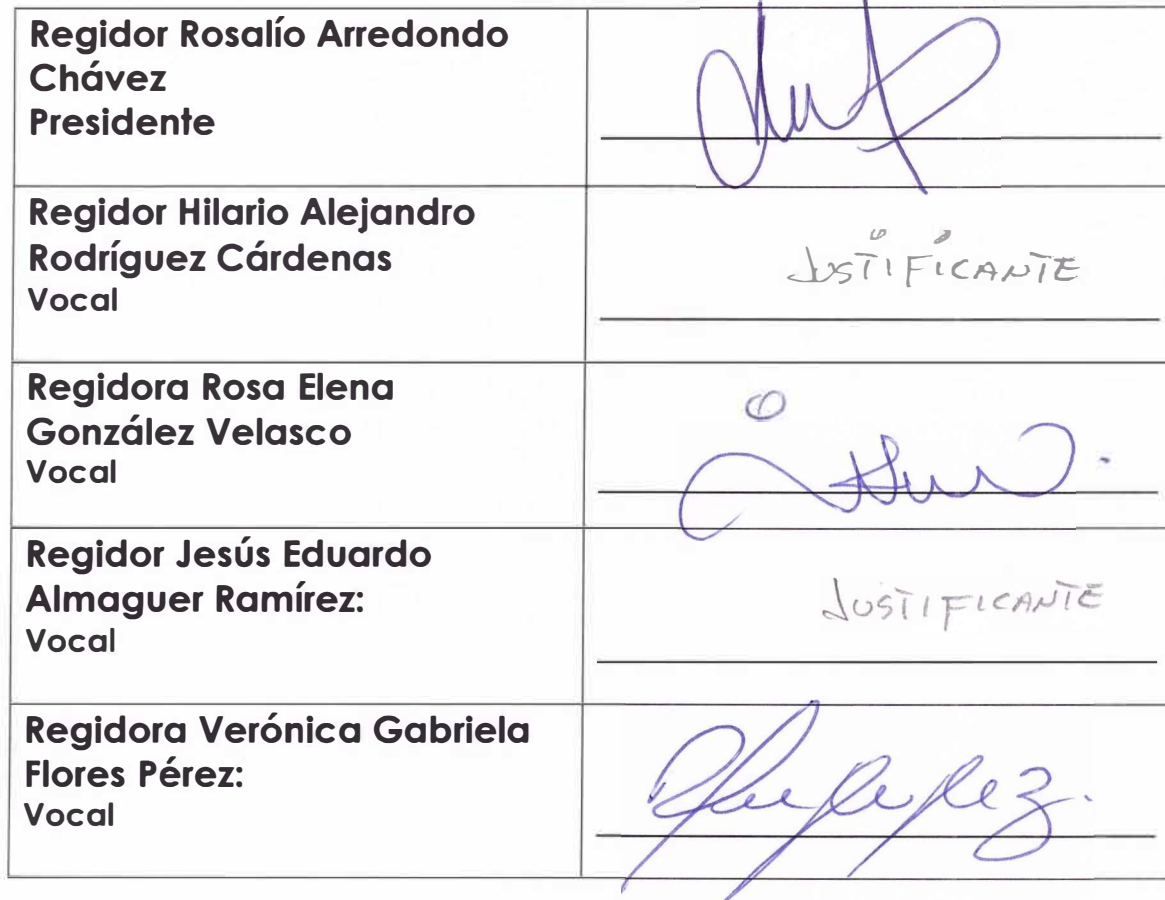 Regidor Rosalío Arredondo
Chávez
Presidente
Regidor Hilario Alejandro
Rodríguez Cárdenas
Vocal
JUSTIFICANTE
Regidora Rosa Elena
González Velasco
Vocal
Regidor Jesús Eduardo
Almaguer Ramírez:
Vocal
JUSTIFICANTE
Regidora Verónica Gabriela
Flores Pérez:
Vocal